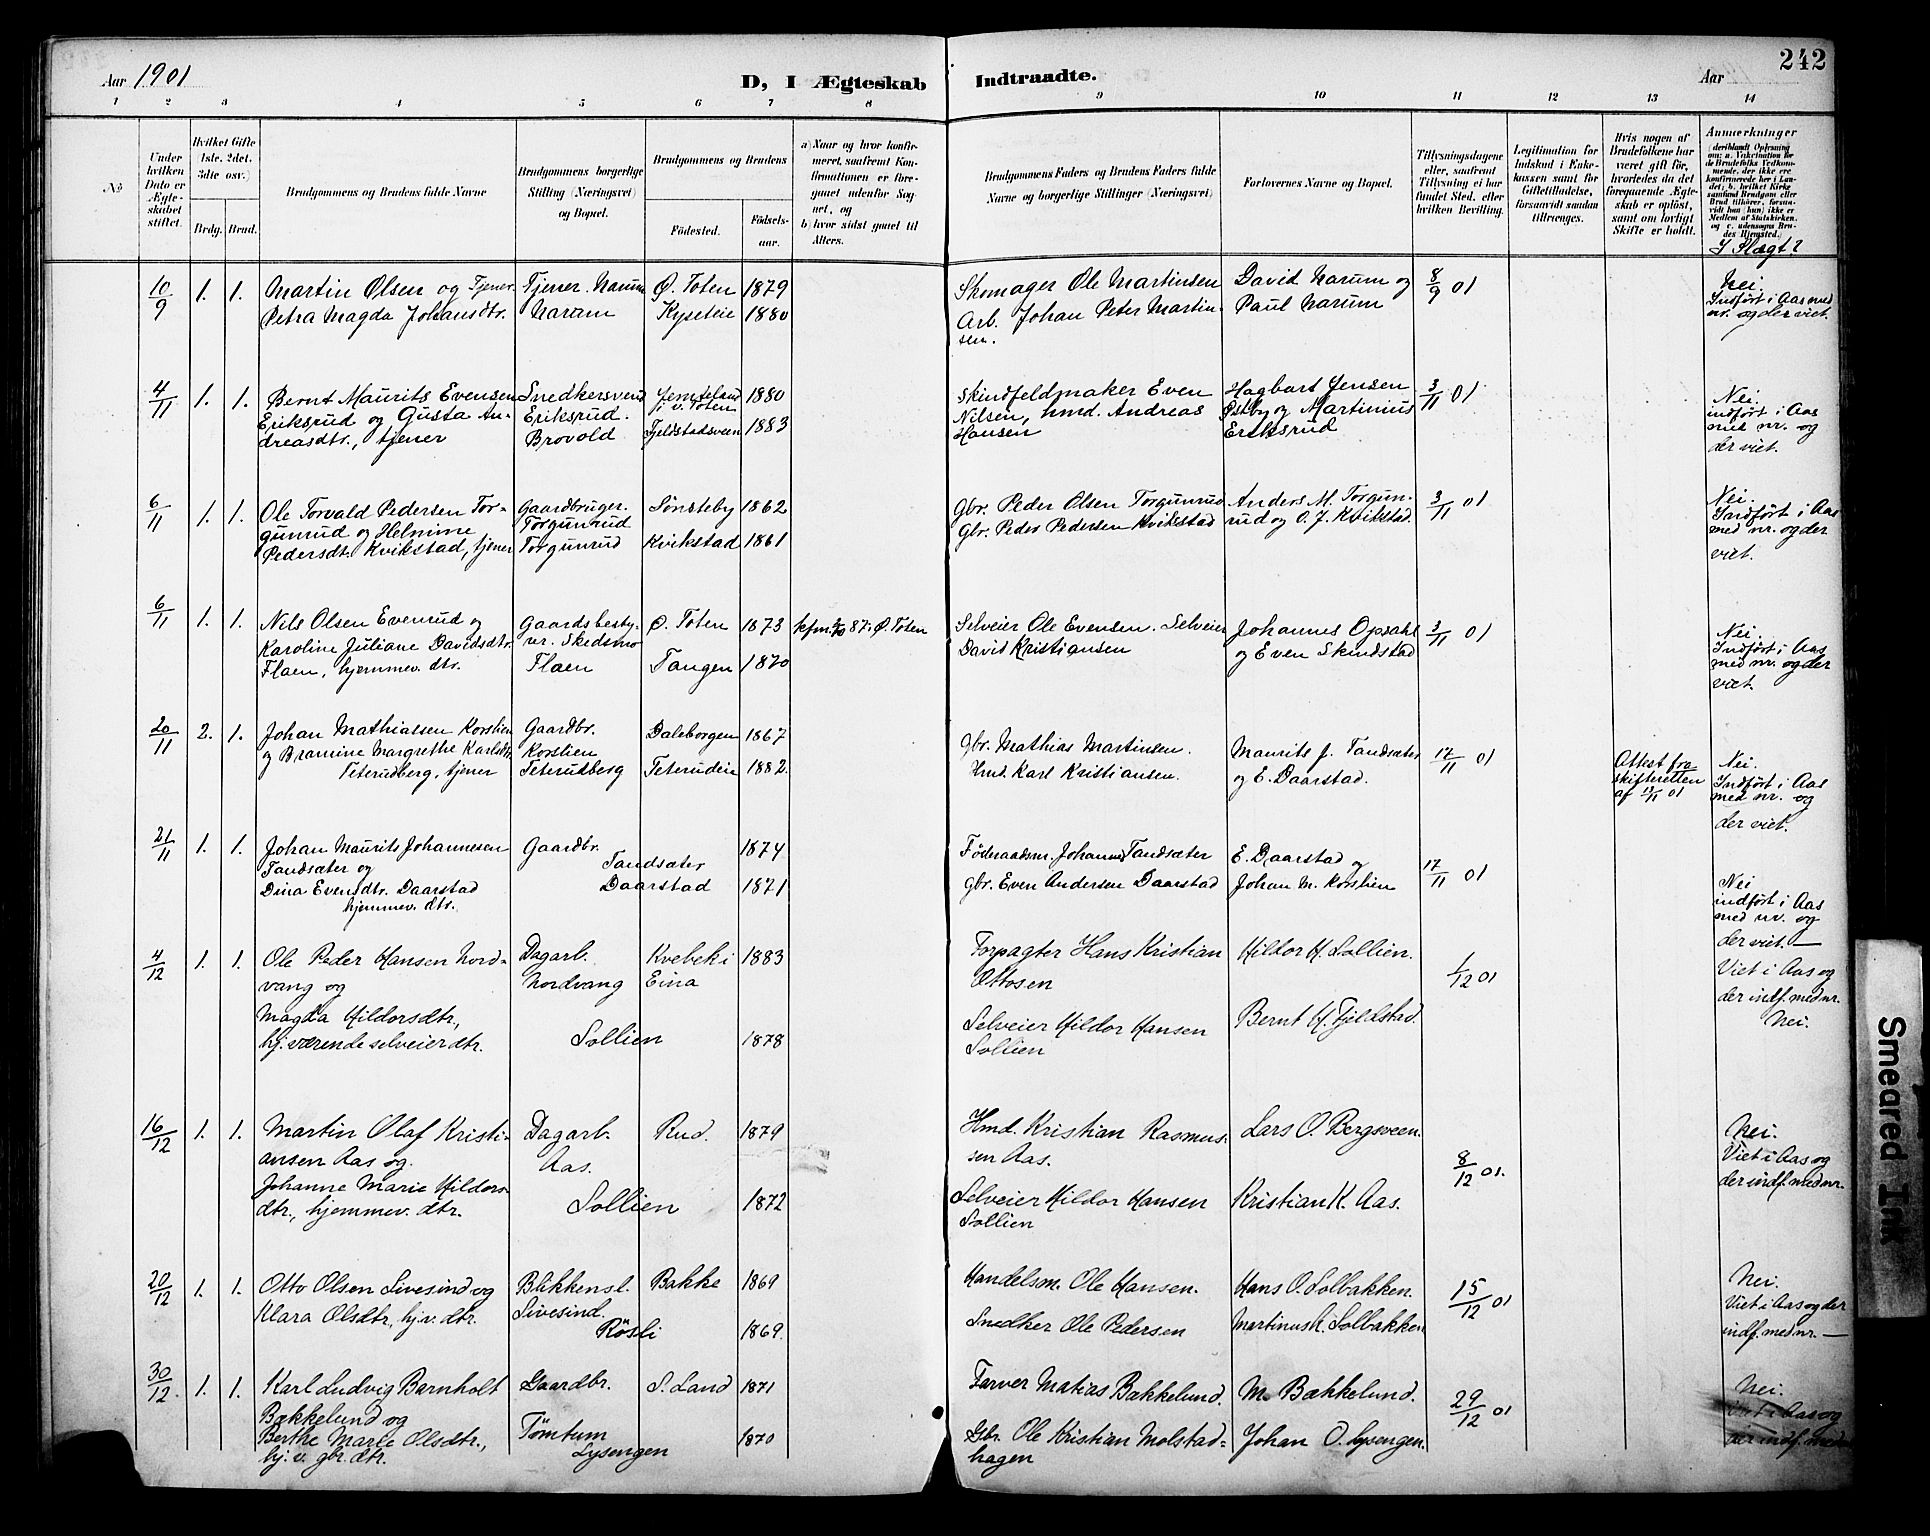 Aar 1901
D, I Ægteskab Indtraadte.
Aar
242
1 2 3 4 5 6 7 8 9 10 11 12 13 14
No
Under hvilken Dato er Ægteskabet stiftet.
Hvilket Gifte 1ste. 2det. 3die osv.)
Brdg. Brud.
Brudgommens og Brudens fulde Navne
Brudgommens borgerlige Stilling (Næringsvei) og Bopæl.
Brudgommens og Brudens
Födested. Födsels-aar.
a) Naar og hvor konfirmeret, saafremt Konfirmationen er foregaaet udenfor Sognet, og
b) hvor sidst gaaet til Alters.
Brudgommens Faders og Brudens Faders fulde Navne og borgerlige Stillinger (Næringsvei)
Forlovernes Navne og Bopæl.
Tillysningsdagene eller, saafremt Tillysning ei har fundet Sted, efter hvilken Bevilling.
Legitimation for Indskud i Enkekassen samt for Giftetilladelse, forsaavidt saadan tiltrænges.
Hvis nogen af Brudefolkene har været gift før, hvorledes da det foregaaende Ægteskab er oplöst, samt om lovligt Skifte er holdt.
Anmærkninger
(deriblandt Oplysning om: a. Vakcination for de Brudefolks Vedkommende, der ikke ere konfirmerede her i Landet; b. hvilket Kirkesamfund Brudgom eller Brud tilhörer, forsaavidt han (hun) ikke er Medlem af Statskirken, og c. udensogns Brudes Hjemsted.)
I Slægt?
10/9 1. 1. Martin Olsen og Tjener Tjener. Narum Ø. Toten 1879 Skomager Ole Martinsen David Narum og 8/9 01 Nei.
Petra Magda Johansdtr. Narum Kyseteie 1880 Arb. Johan Peter Martin- Paul Narum Indfört i Aas med
sen. nr. og der viet.
4/11 1. 1. Bernt Maurits Evensen Snedkersvend Jemteland 1880 Skindfeldmaker Even Hagbart Jensen 3/11 01 Nei.
Eriksrud og Gusta An- Eriksrud. i v. Toten Nilsen, hmd. Andreas Østby og Martinius indfört i Aas
dreasdtr., tjener Brovold Fjeldstadsveen 1883 Hansen Eriksrud med nr. og
der viet.
6/11 1. 1. Ole Torvald Pedersen Tor- Gaardbruger. Sønsteby 1862 Gbr. Peder Olsen Torgunrud Anders M. Torgun- 3/11 01 Nei.
gunrud og Helmine Torgunrud Gbr. Peder Pedersen Kvikstad rud og O. J. Kvikstad. Indfört i Aas
Pedersdt. Kvikstad, tjener Torgunrud Kvikstad 1861 med nr. og der
viet.
6/11 1. 1. Nils Olsen Evenrud og Gaardsbesty- Ø. Toten 1873 kfm. 2/10 87. Ø. Toten Selveier Ole Evensen. Selveier Johannes Opsahl 3/11 01 Nei
Karoline Juliane Davidsdtr. rer. Skedsmo David Kristiansen og Even Skindstad Indfört i Aas
Flaen, hjemmev. dtr. Flaen Tangen 1870 med nr. og der
viet.
20/11 2. 1. Johan Mathiasen Korslien Gaardbr. Dalsborgen 1867 gbr. Mathias Martinsen. Maurits J. Tandsæter 17/11 01 Attest fra Nei.
og Bramine Margrethe Karlsdtr. Korslien Hmd. Karl Kristiansen. og E. Daarstad. skifteretten Indfört i Aas
Teterudberg, tjener Teterudberg Teterudeie 1882. af 13/11 01 med nr. og
der viet.
21/11 1. 1. Johan Maurits Johannesen Gaardbr. 1874 Föderaadsm. Johannes Tandsæter E. Daarstad og 17/11 01
Tandsæter og Tandsæter
Dina Evensdtr. Daarstad Daarstad 1871 gbr. Even Andersen Daarstad Johan M. Korslien Nei
hjemmev. dtr. indfört i Aas
med nr. og
der viet. —
4/12 1. 1. Ole Peder Hansen Nord- Dagarb. Kvebek i 1883 Forpagter Hans Kristian Hildor H. Sollien. 1/12 01 Viet i Aas og
vang og Nordvang Eina Ottosen der indf. med nr.
Magda Hildorsdtr, Selveier Hildor Hansen Bernt H. Fjeldstad. Nei.
hj. værende selveier dtr. Sollien 1878 Sollien
16/12 1. 1. Martin Olaf Kristi- Dagarb. Rud. 1879 Hmd. Kristian Rasmus- Lars O. Bergsveen. 8/12 01. Nei.
ansen Aas og Aas. sen Aas. Viet i Aas og
Johanne Marie Hildors- Selveier Hildor Hansen Kristian K. Aas. der indf. med nr.
dtr., hjemmev. dtr. Sollien 1872 Sollien
20/12 1. 1. Otto Olsen Sivesind og Blikkensl. Bakke 1869 Handelsm. Ole Hansen. Hans O. Solbakken. 15/12 01 Nei.
Klara Olsdtr, hj. v. dtr. Sivesind. Viet i Aas og der
Rösli 1869. Snedker Ole Pedersen Martinus K. Solbakken indf. med nr. —
30/12. 1. 1. Karl Ludvig Barnholt Gaardbr. S. Land 1871 Farver Matias Bakkelund. M. Bækkelund. 29/12 01 Nei.
Bækkelund og Viet i Aas og
Berthe Marie Olsdtr., Tömtum 1870 Gbr. Ole Kristian Molstad- Johan O. Lysengen. der indf. med nr
hj. v. gbr. dtr. Lysengen hagen
Smeared Ink